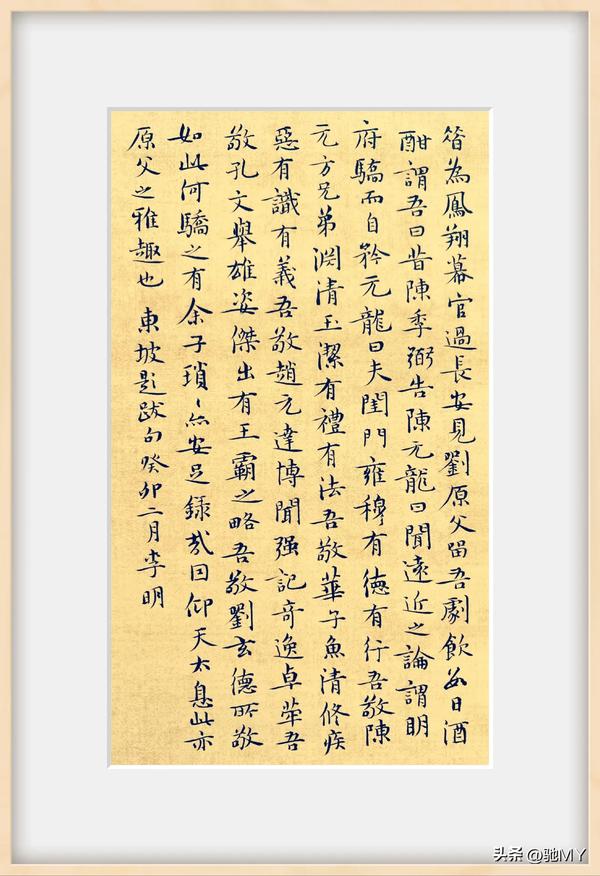 昔為鳳翔幕官過長安見劉原父留吾劇飲數日酒
酣謂吾曰昔陳季弼告陳元龍曰聞遠近之論謂明
府驕而自矜元龍曰夫閨門雍穆有德有行吾敬陳
元方兄弟淵清玉潔有禮有法吾敬華子魚清修疾
惡有識有義吾敬趙元達博聞强記奇逸卓犖吾
敬孔文舉雄姿傑出有王霸之略吾敬劉玄德所敬
如此何驕之有余子瑣〻亦安足錄哉因仰天太息此亦
原父之雅趣也 東坡題跋句癸卯二月李明
头条 @驰MY